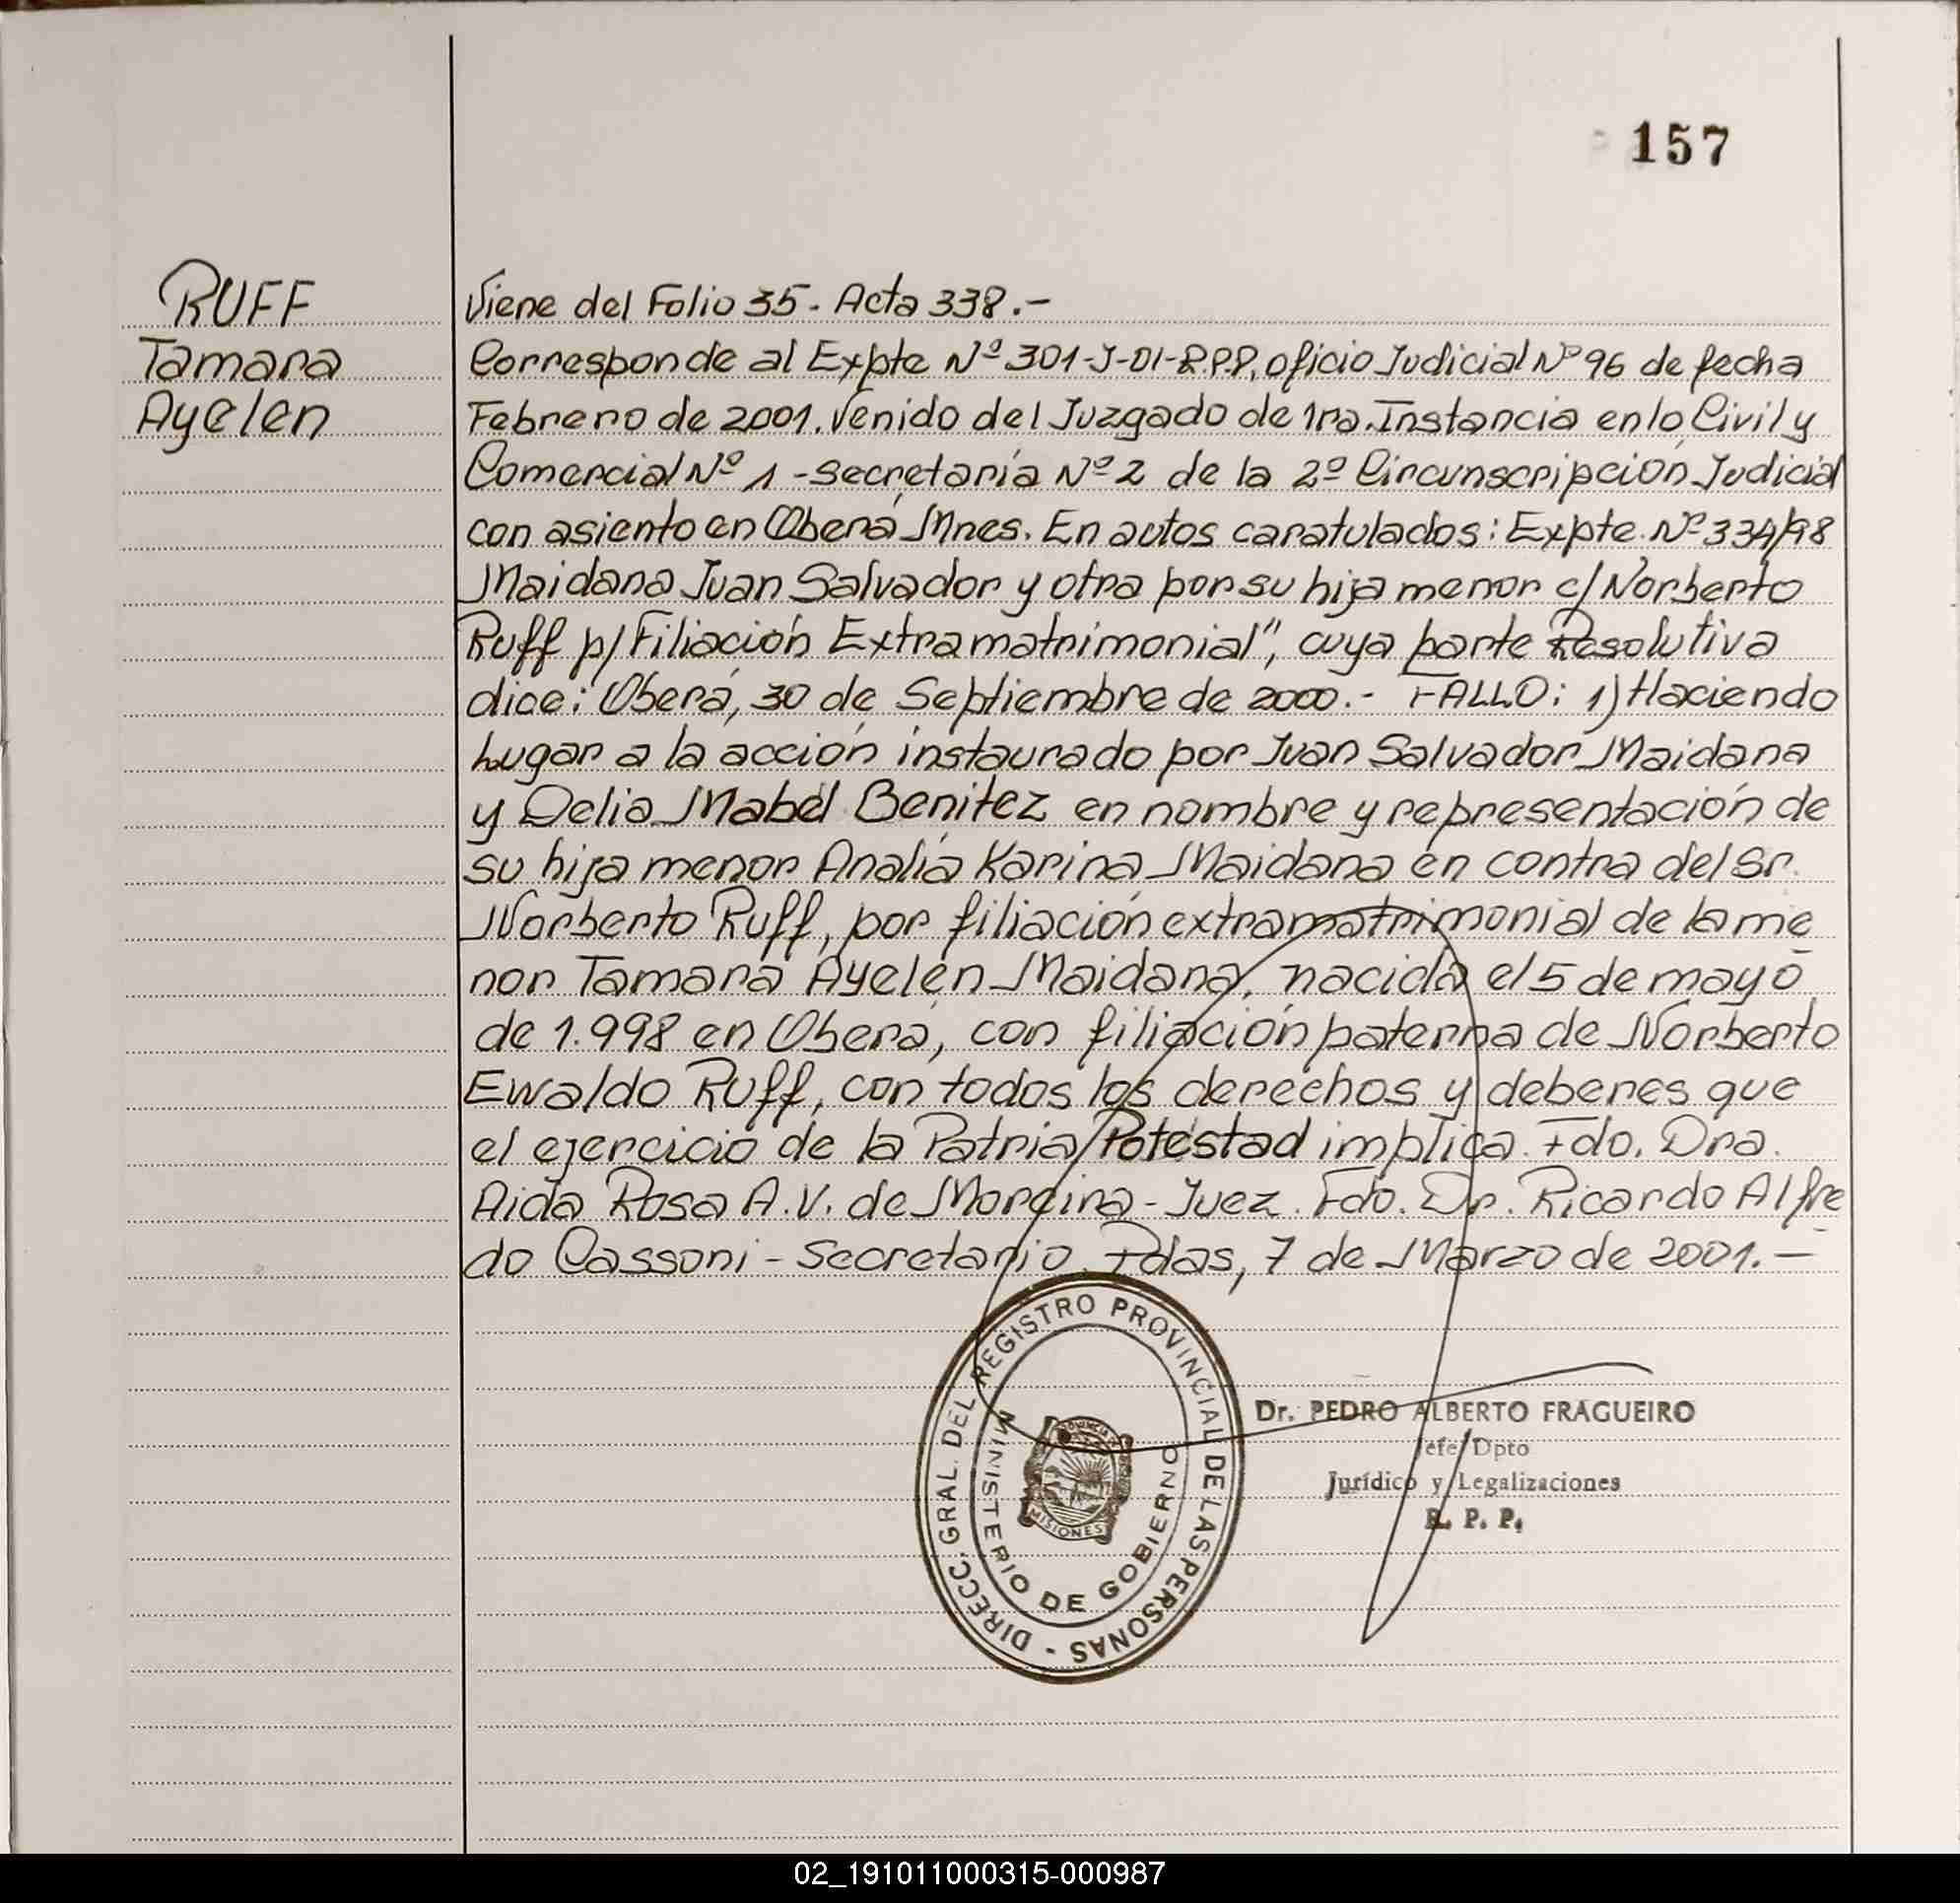 157
RUFF
Tamara
Ayelen
Viene del Folio 35 - Acta 338.-
Corresponde al Expte Nº 301-J-01-R.P.P, oficio Judicial Nº 96 de fecha
Febrero de 2001. Venido del Juzgado de 1ra. Instancia en lo Civil y
Comercial Nº 1 - Secretaría Nº 2 de la 2º Circunscripción Judicial
con asiento en Oberá Mnes. En autos caratulados: Expte. Nº 334/98
Maidana Juan Salvador y otra por su hija menor c/ Norberto
Ruff p/ Filiación Extramatrimonial", cuya parte Resolutiva
dice: Oberá, 30 de Septiembre de 2000.- FALLO: 1) Haciendo
lugar a la acción instaurado por Juan Salvador Maidana
y Delia Mabel Benitez en nombre y representación de
su hija menor Analía Karina Maidana en contra del Sr.
Norberto Ruff, por filiación extramatrimonial de la me
nor Tamara Ayelén Maidana, nacida el 5 de mayo
de 1.998 en Oberá, con filiación paterna de Norberto
Ewaldo Ruff, con todos los derechos y deberes que
el ejercicio de la Patria Potestad implica. Fdo. Dra.
Aida Rosa A.V. de Moreira - Juez. Fdo. Dr. Ricardo Alfre
do Cassoni - Secretario. Pdas, 7 de Marzo de 2001.-
DIRECC. GRAL. DEL REGISTRO PROVINCIAL DE LAS PERSONAS -
MINISTERIO DE GOBIERNO
MISIONES
Dr. PEDRO ALBERTO FRAGUEIRO
Jefe Dpto
Jurídico y Legalizaciones
R. P. P.
02_191011000315-000987